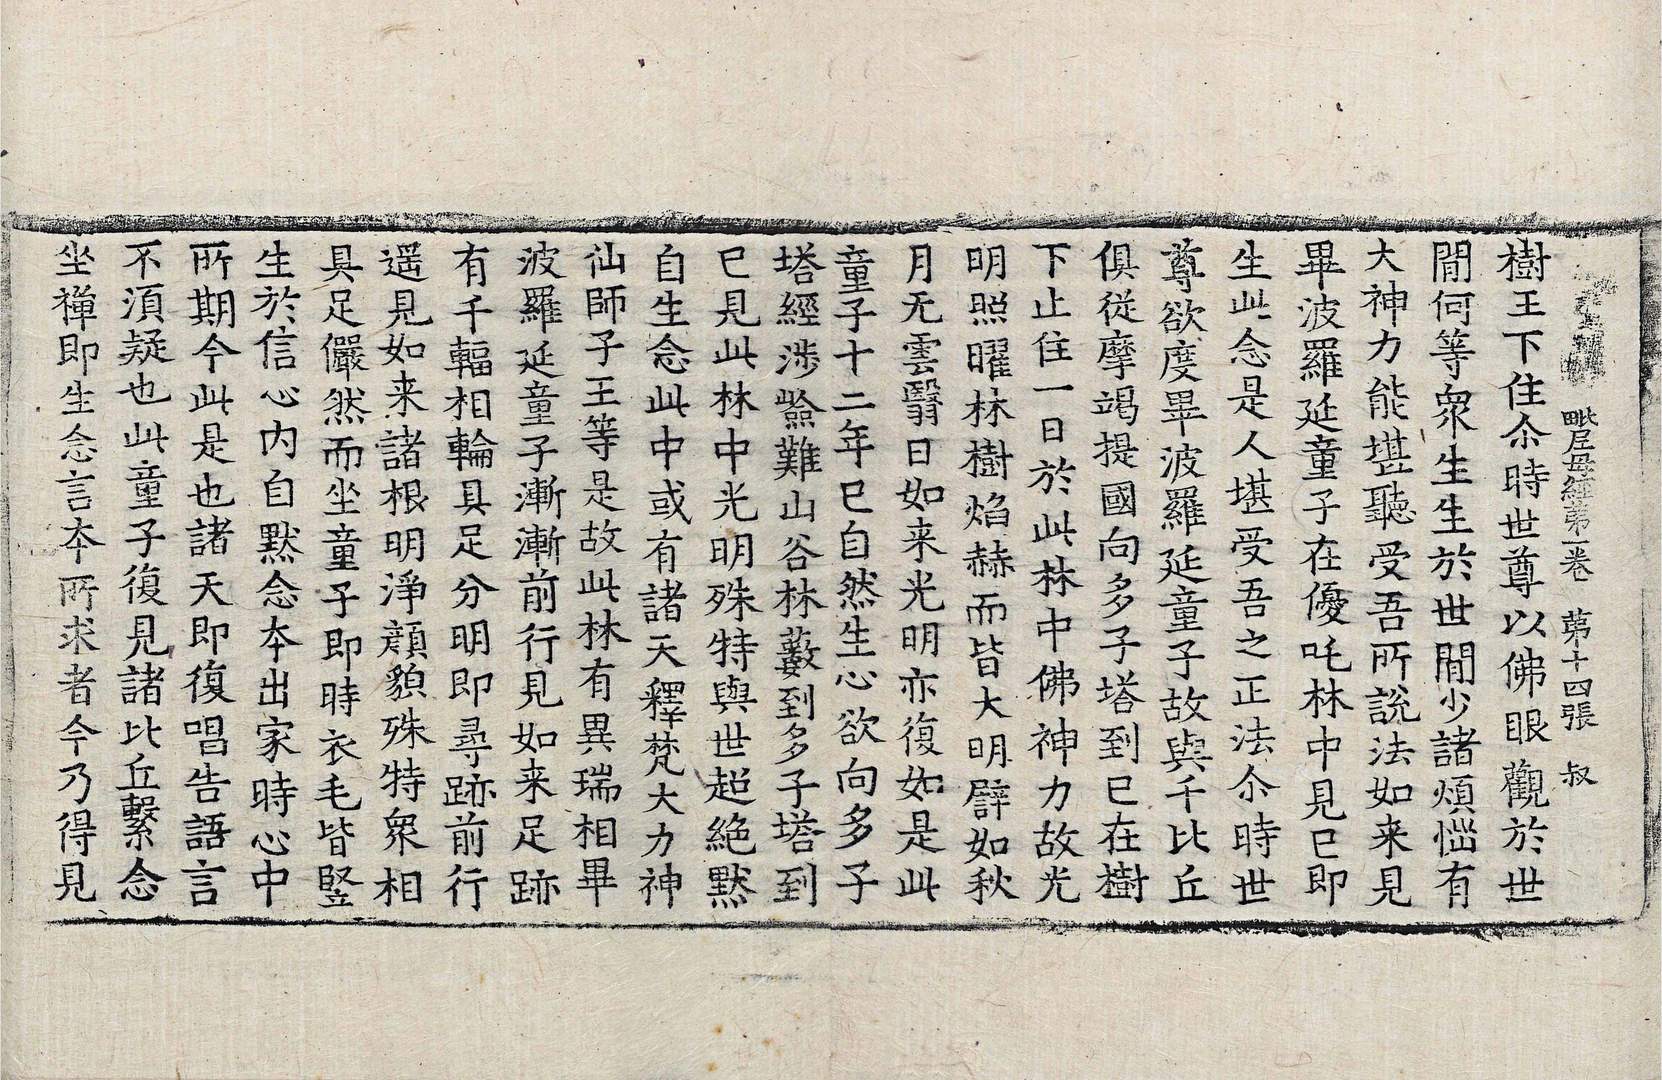 毗尼母經第一卷　第十四張　叔
樹王下住尒時世尊以佛眼觀於世
閒何等衆生生於世閒少諸煩惱有
大神力能堪聽受吾所說法如来見
畢波羅延童子在優吒林中見已即
生此念是人堪受吾之正法尒時世
尊欲度畢波羅延童子故與千比丘
俱從摩竭提國向多子塔到已在樹
下止住一日於此林中佛神力故光
明照曜林樹焰赫而皆大明譬如秋
月无雲翳日如来光明亦復如是此
童子十二年已自然生心欲向多子
塔經涉嶮難山谷林藪到多子塔到
已見此林中光明殊特與世超絶默
自生念此中或有諸天釋梵大力神
仙師子王等是故此林有異瑞相畢
波羅延童子漸漸前行見如来足跡
有千輻相輪具足分明即尋跡前行
遥見如来諸根明淨顔貌殊特衆相
具足儼然而坐童子即時衣毛皆竪
生於信心內自默念本出家時心中
所期今此是也諸天即復唱告語言
不須疑也此童子復見諸比丘繫念
坐禪即生念言本所求者今乃得見